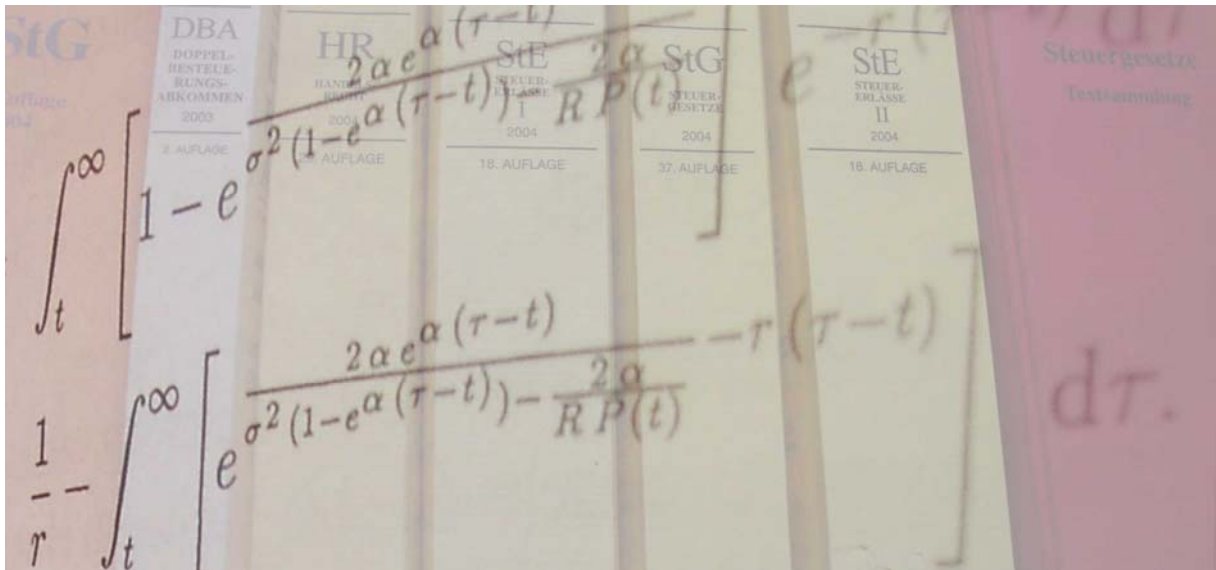 StG
DBA
DOPPEL-
BESTEUE-
RUNGS-
ABKOMMEN
2003
2. AUFLAGE
HR
2004
AUFLAGE
StE
STEUER-
ERLÄSSE
I
2004
18. AUFLAGE
StG
STEUER-
GESETZE
2004
37. AUFLAGE
StE
STEUER-
ERLÄSSE
II
2004
18. AUFLAGE
Steuergesetze
Textsammlung
∫_t^∞ [1 − e^{2 α e^{α (τ−t)} / (σ^2 (1−e^{α (τ−t)}) − 2 α / (R P(t)))}] e^{−r (τ−t)} dτ
1/r − ∫_t^∞ [e^{2 α e^{α (τ−t)} / (σ^2 (1−e^{α (τ−t)}) − 2 α / (R P(t))) − r (τ−t)}] dτ.